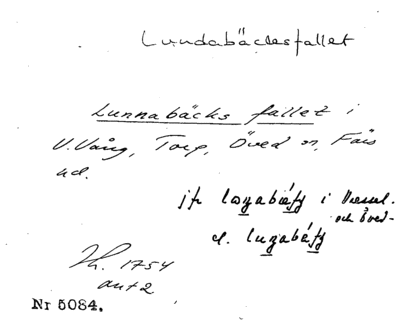 Lundabäcksfallet
Lunnabäcks fallet i
V. Vång, Torp, Öved sn, Färs
hd.
jfr i Vressel.
och Öved-
d.
Kh. 1754
ant 2
Nr 5084.